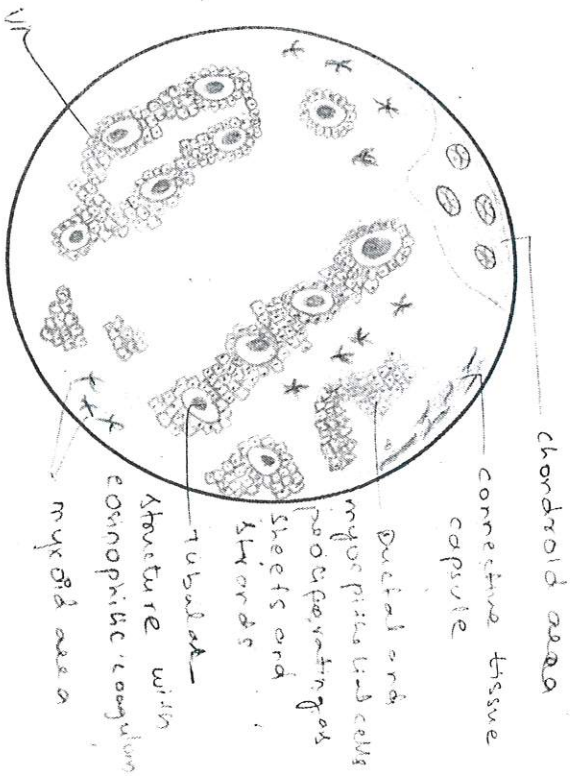 chondroid area
connective tissue
capsule
Ductal and
myoepithelial cells
proliperating as
sheets and
strands
Tubular
structure with
eosinophilic coagulum
myxoid area